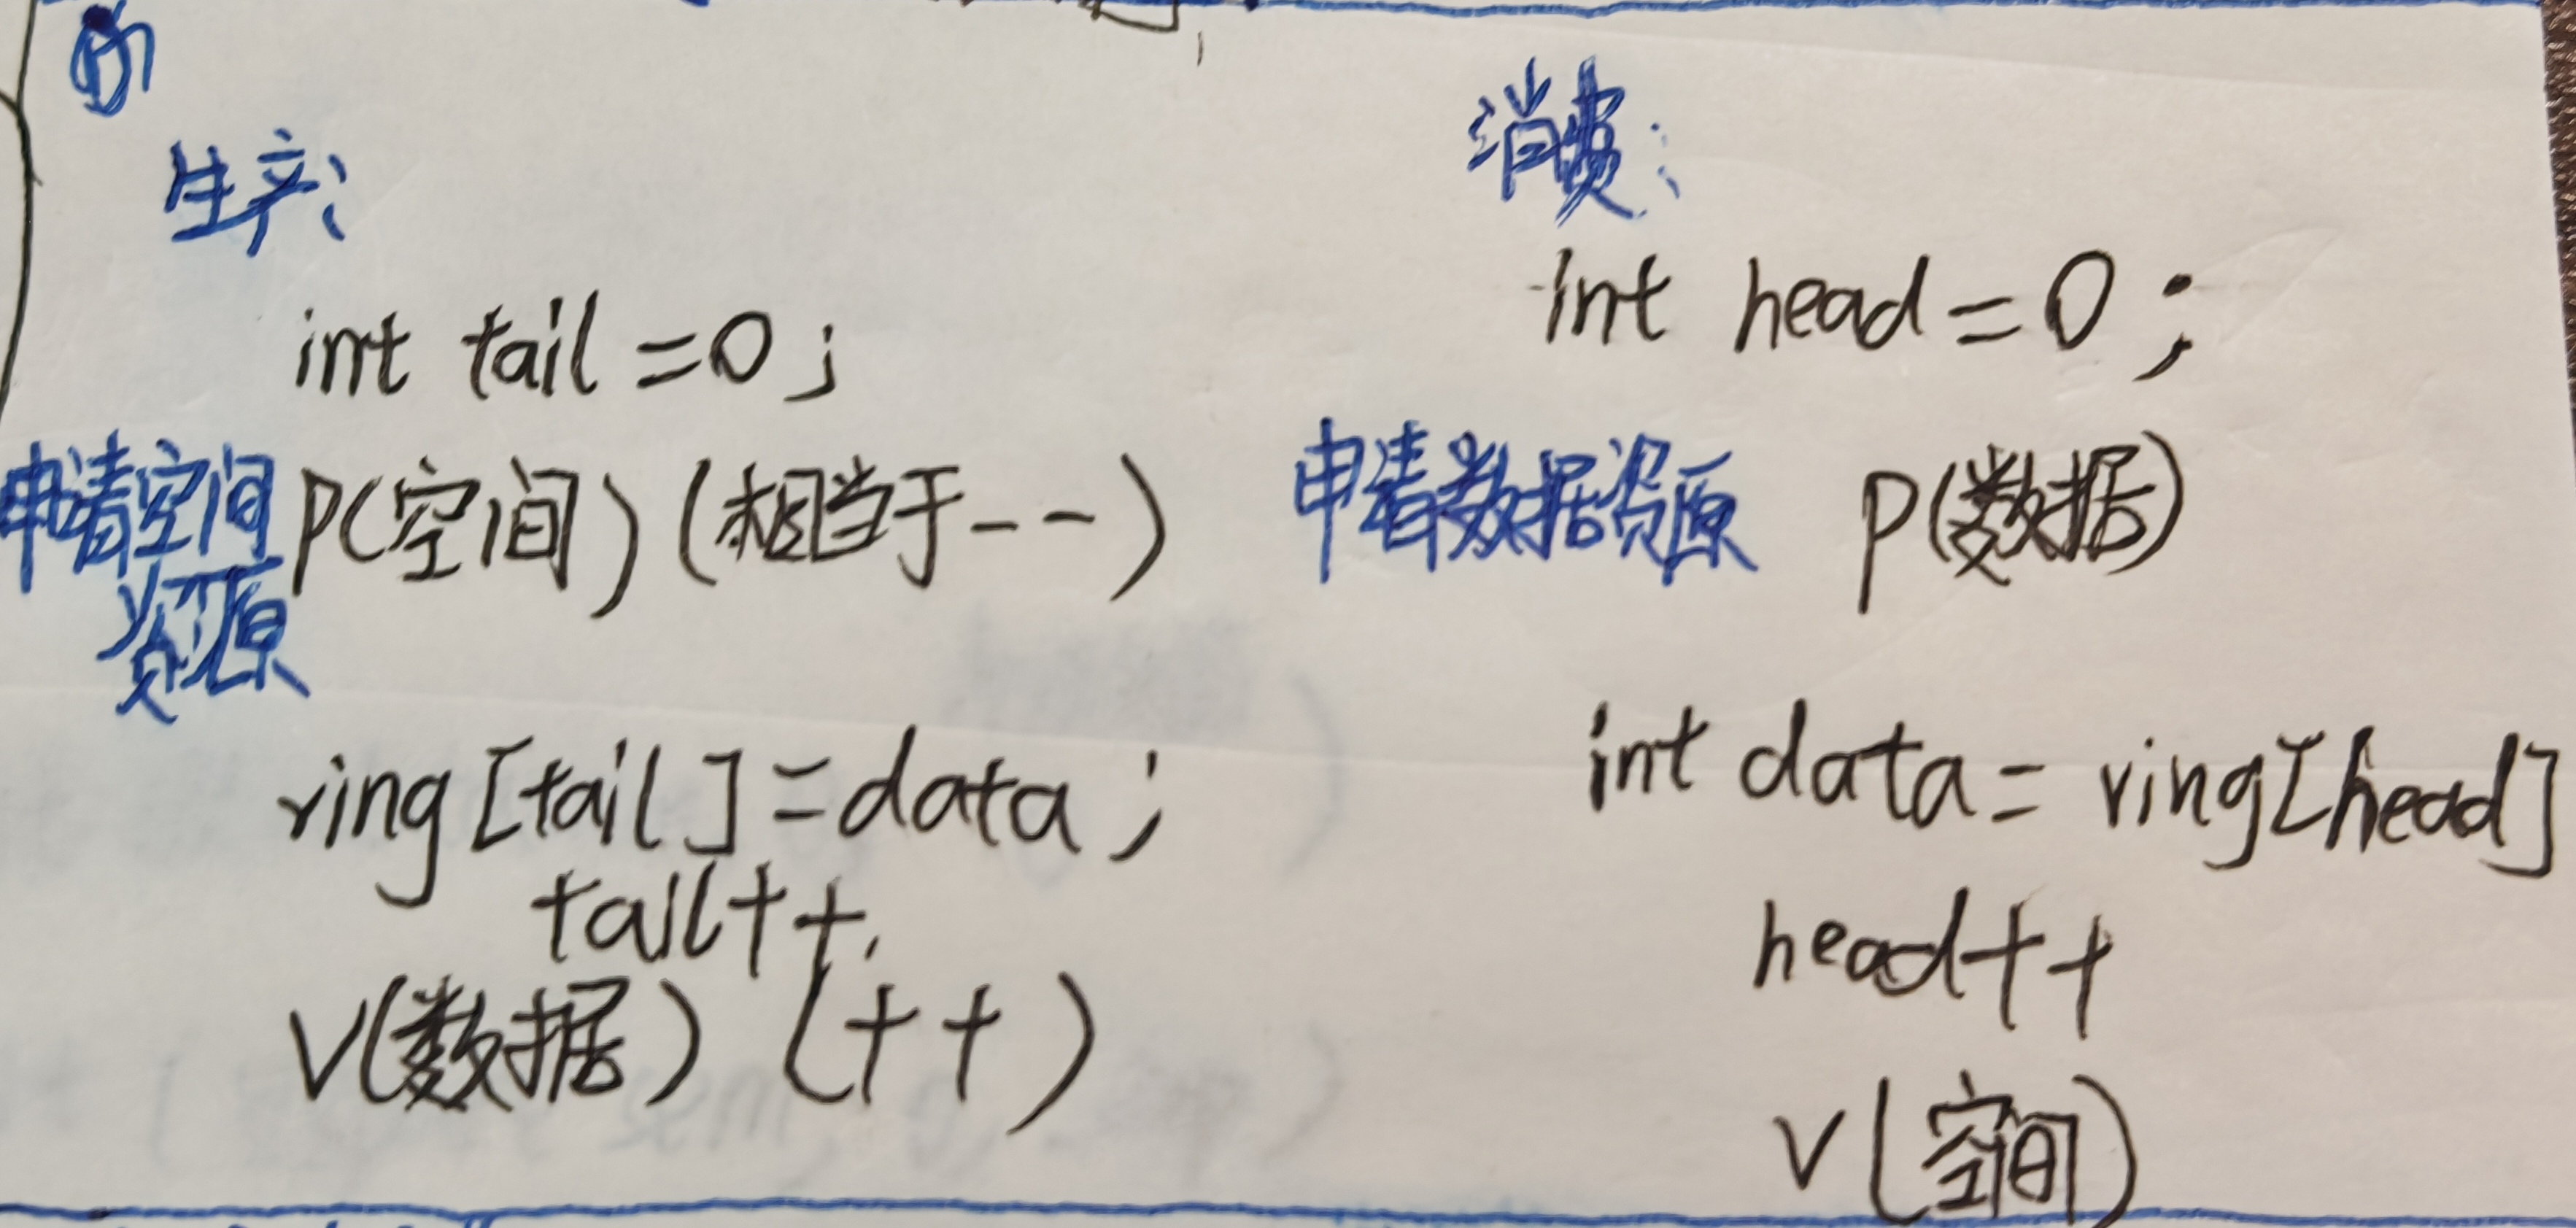 生产:
int tail = 0;
申请空间资源 P(空间) (相当于--)
ring[tail] = data;
tail++;
V(数据) (++)
消费:
int head = 0;
申请数据资源 P(数据)
int data = ring[head]
head++
V(空间)